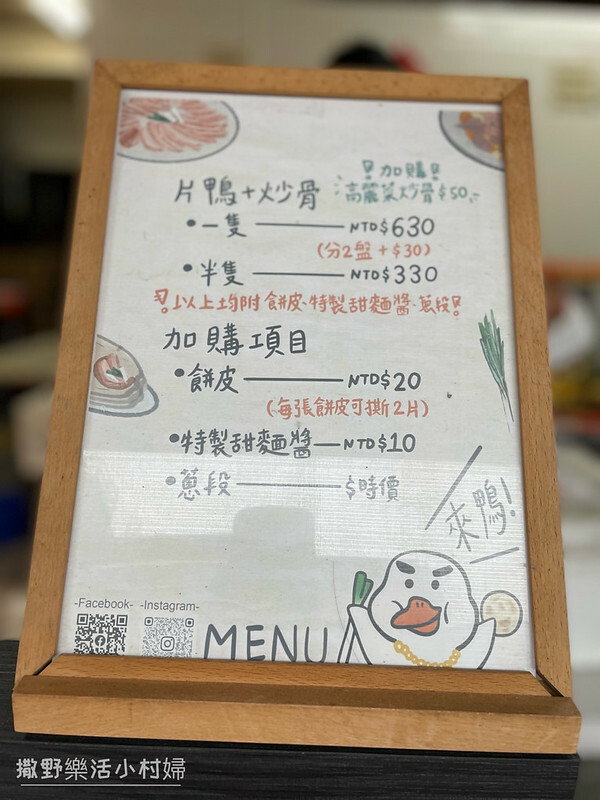 ！加購！
片鴨+炒骨 高麗菜炒骨$50
•一隻 NTD$630
(分2盤+$30)
•半隻 NTD$330
！以上均附餅皮、特製甜麵醬、蔥段！
加購項目
•餅皮 NTD$20
(每張餅皮可撕2片)
•特製甜麵醬 NTD$10
•蔥段 $時價
來鴨！
-Facebook- -Instagram-
MENU
撒野樂活小村婦